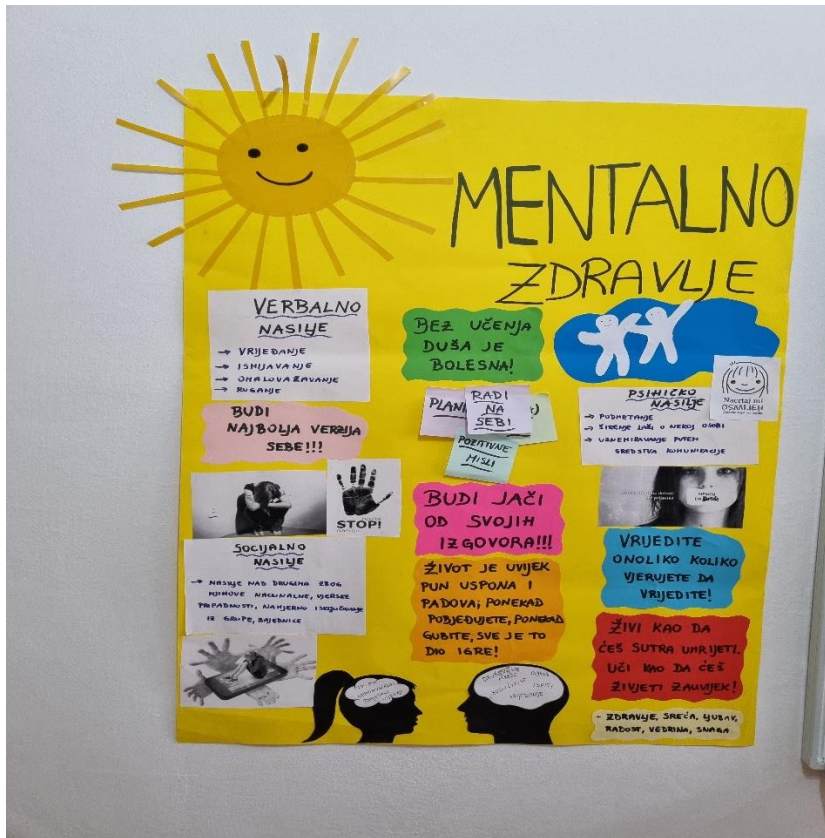 MENTALNO
ZDRAVLJE
VERBALNO
NASILJE
→ VRIJEĐANJE
→ ISMIJAVANJE
→ OMALOVAŽAVANJE
→ RUGANJE
BUDI
NAJBOLJA VERZIJA
SEBE!!!
STOP!
SOCIJALNO
NASILJE
→ NASILJE NAD DRUGIMA ZBOG
NJIHOVE NACIONALNE, VJERSKE
PRIPADNOSTI, NAMJERNO ISKLJUČIVANJE
IZ GRUPE, ZAJEDNICE
BEZ UČENJA
DUŠA JE
BOLESNA!
RADI
NA
SEBI
POZITIVNE
MISLI
BUDI JAČI
OD SVOJIH
IZGOVORA!!!
ŽIVOT JE UVIJEK
PUN USPONA I
PADOVA; PONEKAD
POBJEĐUJETE, PONEKAD
GUBITE, SVE JE TO
DIO IGRE!
Nacrtaj mi
OSMIJEH
PSIHIČKO
NASILJE
→ PODMETANJE
→ ŠIRENJE LAŽI O NEKOJ OSOBI
→ UZNEMIRAVANJE PUTEM
SREDSTVA KOMUNIKACIJE
VRIJEDITE
ONOLIKO KOLIKO
VJERUJETE DA
VRIJEDITE!
ŽIVI KAO DA
ĆEŠ SUTRA UMRIJETI.
UČI KAO DA ĆEŠ
ŽIVJETI ZAUVIJEK!
- ZDRAVLJE, SREĆA, LJUBAV,
RADOST, VEDRINA, SNAGA